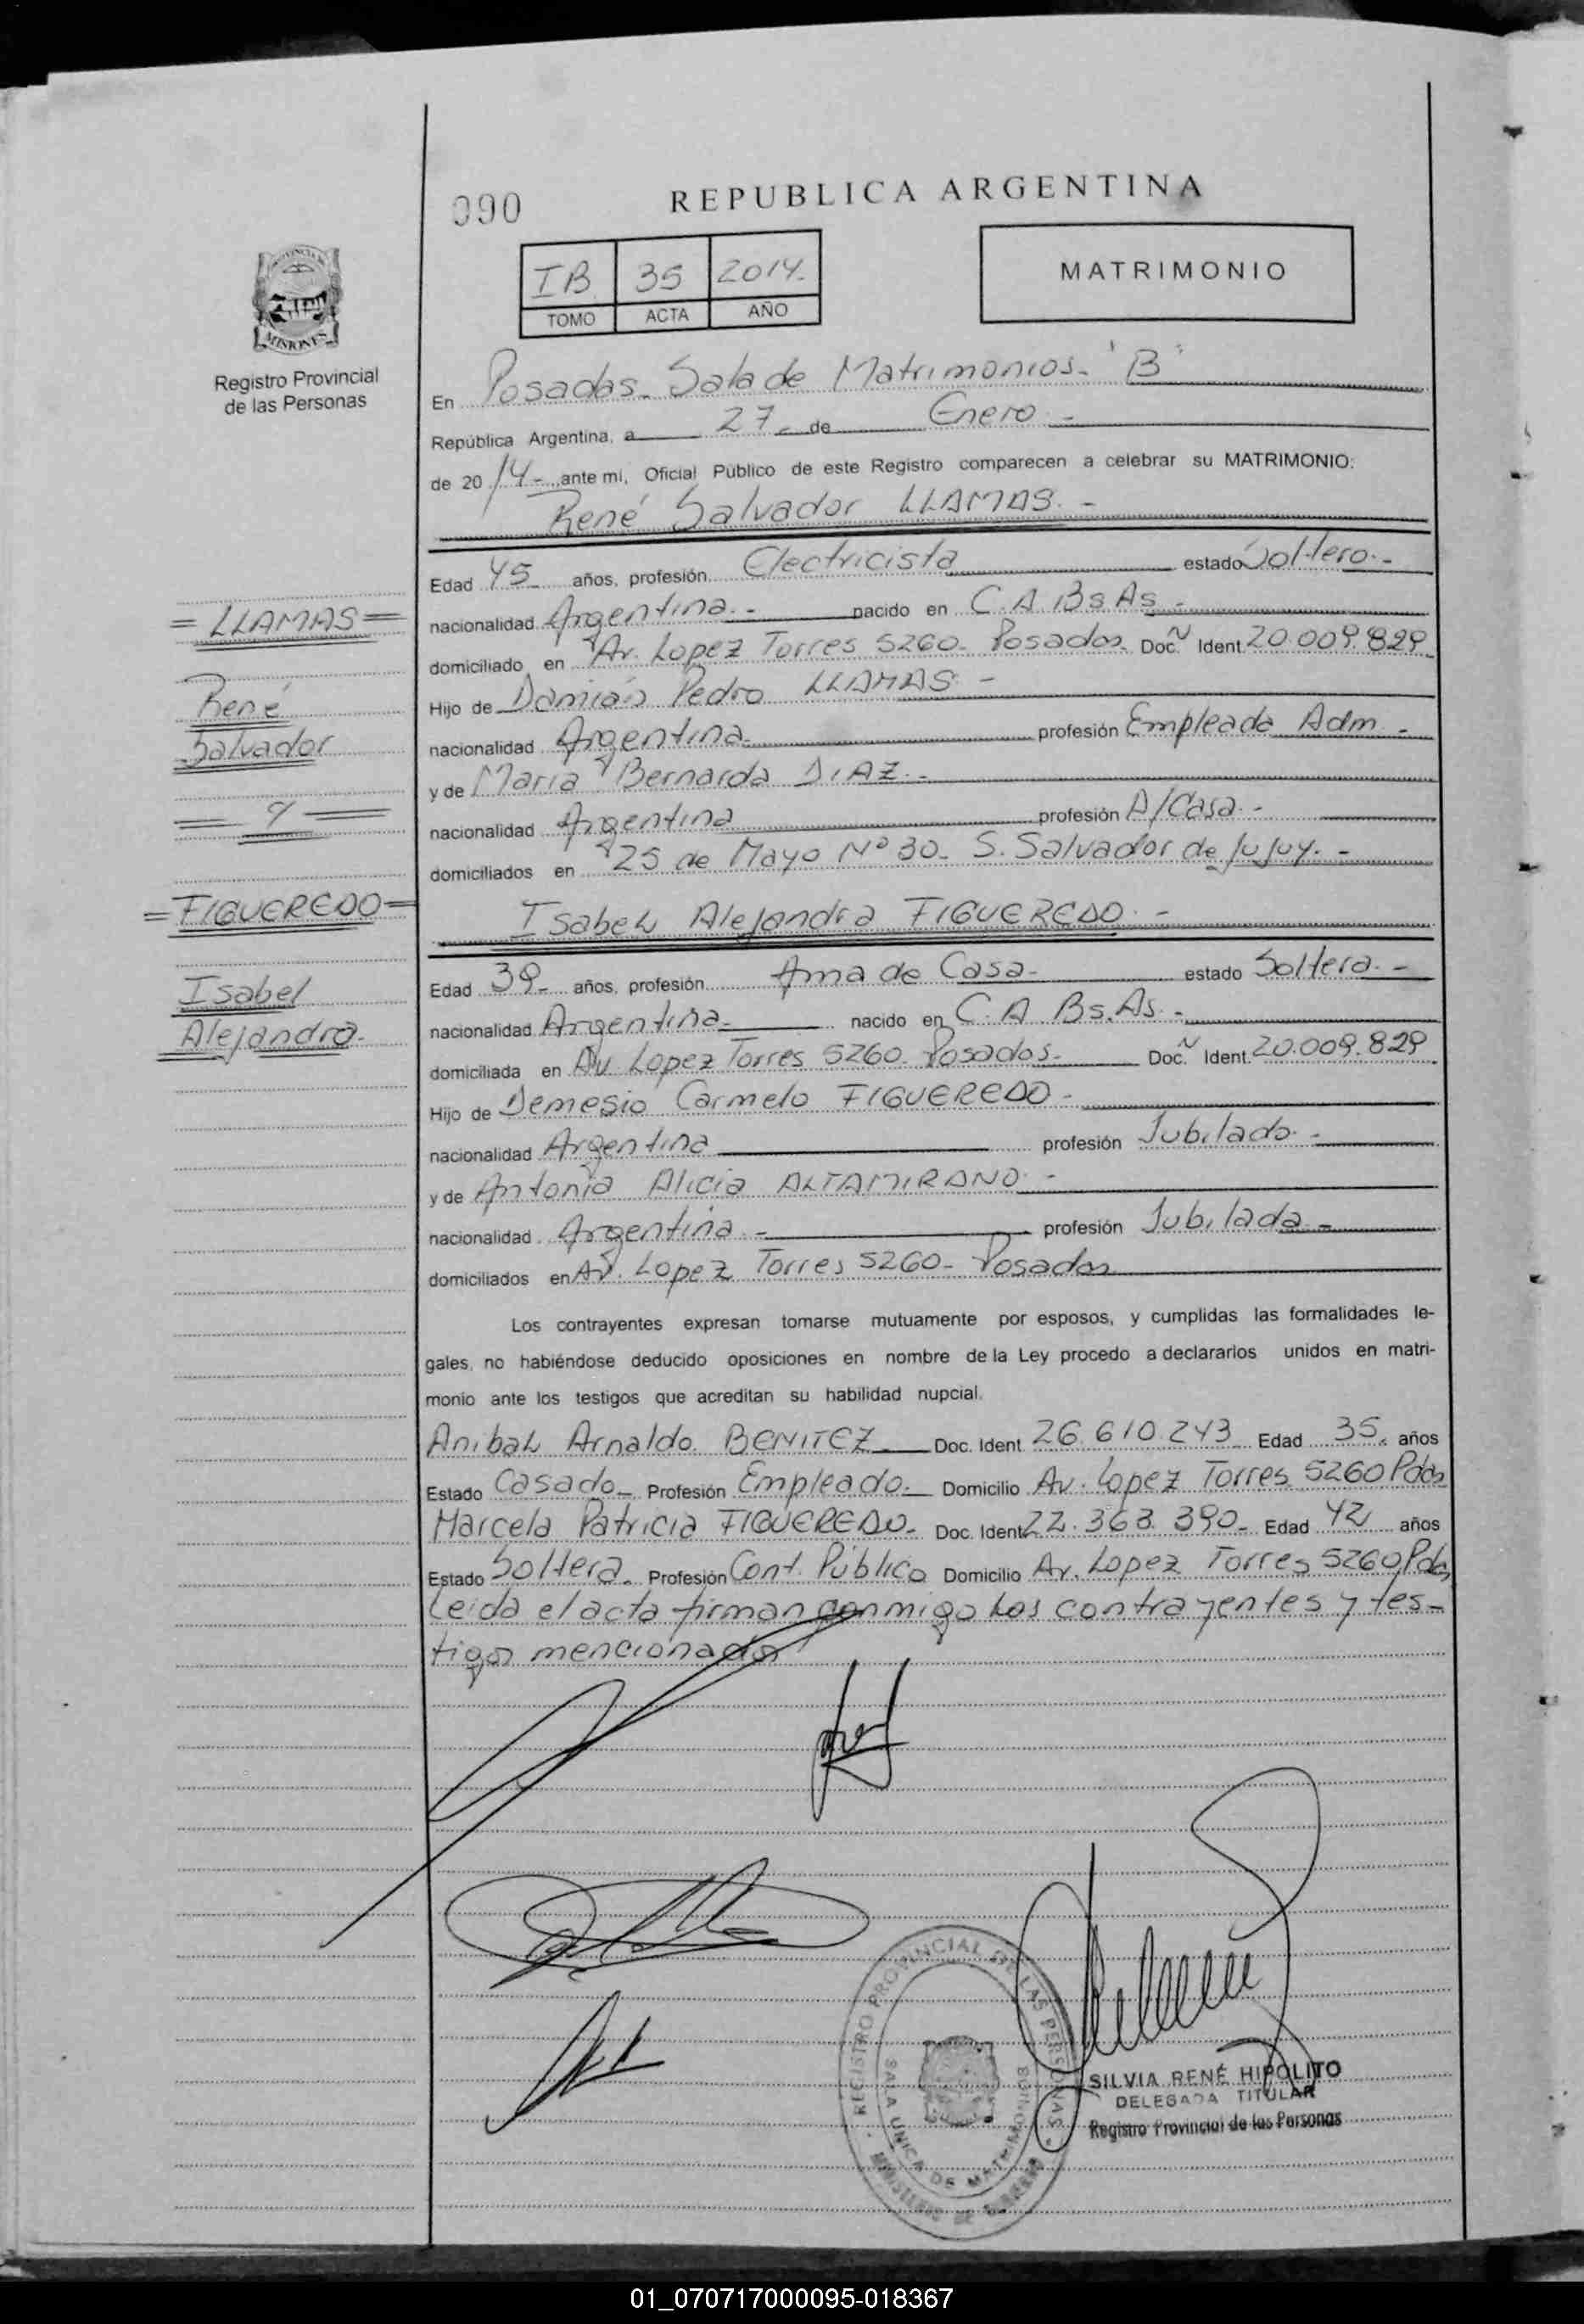 090
REPUBLICA ARGENTINA
IB 35 2014.
TOMO ACTA AÑO
MATRIMONIO
MISIONES
Registro Provincial
de las Personas
En Posadas. Sala de Matrimonios. "B"
República Argentina, a 27. de Enero.-
de 2014.- ante mi, Oficial Público de este Registro comparecen a celebrar su MATRIMONIO:
René Salvador LLAMAS.-
Edad 45 años, profesión Electricista estado Soltero.-
nacionalidad Argentina.- nacido en C.A.Bs As.-
domiciliado en Av. Lopez Torres 5260. Posadas. Doc. Ident. 20.009.829
Hijo de Damián Pedro LLAMAS.-
nacionalidad Argentina. profesión Empleado Adm.-
y de Maria Bernarda DIAZ.-
nacionalidad Argentina profesión A/Casa.-
domiciliados en 25 de Mayo Nº 30. S. Salvador de Jujuy.-
Isabel Alejandra FIGUEREDO.-
Edad 39. años, profesión Ama de Casa. estado Soltera.-
nacionalidad Argentina. nacido en C.A Bs.As.-
domiciliada en Av Lopez Torres 5260. Posadas. Doc. Ident. 20.009.829
Hijo de Demesio Carmelo FIGUEREDO.-
nacionalidad Argentina profesión Jubilado.-
y de Antonia Alicia ALTAMIRANO.-
nacionalidad Argentina.- profesión Jubilada.-
domiciliados en Av. Lopez Torres 5260- Posadas
Los contrayentes expresan tomarse mutuamente por esposos, y cumplidas las formalidades le-
gales, no habiéndose deducido oposiciones en nombre de la Ley procedo a declararlos unidos en matri-
monio ante los testigos que acreditan su habilidad nupcial.
Anibal Arnaldo BENITEZ Doc. Ident 26.610.243 Edad 35. años
Estado Casado. Profesión Empleado. Domicilio Av. Lopez Torres 5260 Pdas
Marcela Patricia FIGUEREDO. Doc. Ident 22.363.390. Edad 42 años
Estado Soltera. Profesión Cont. Público Domicilio Av. Lopez Torres 5260 Pdas
Leida el acta firman conmigo los contrayentes y tes-
tigos mencionados
= LLAMAS =
René
Salvador
= y =
= FIGUEREDO =
Isabel
Alejandra.
REGISTRO PROVINCIAL DE LAS PERSONAS
SALA UNICA DE MATRIMONIOS
MINISTERIO DE GOBIERNO
SILVIA RENÉ HIPÓLITO
DELEGADA TITULAR
Registro Provincial de las Personas
01_070717000095-018367